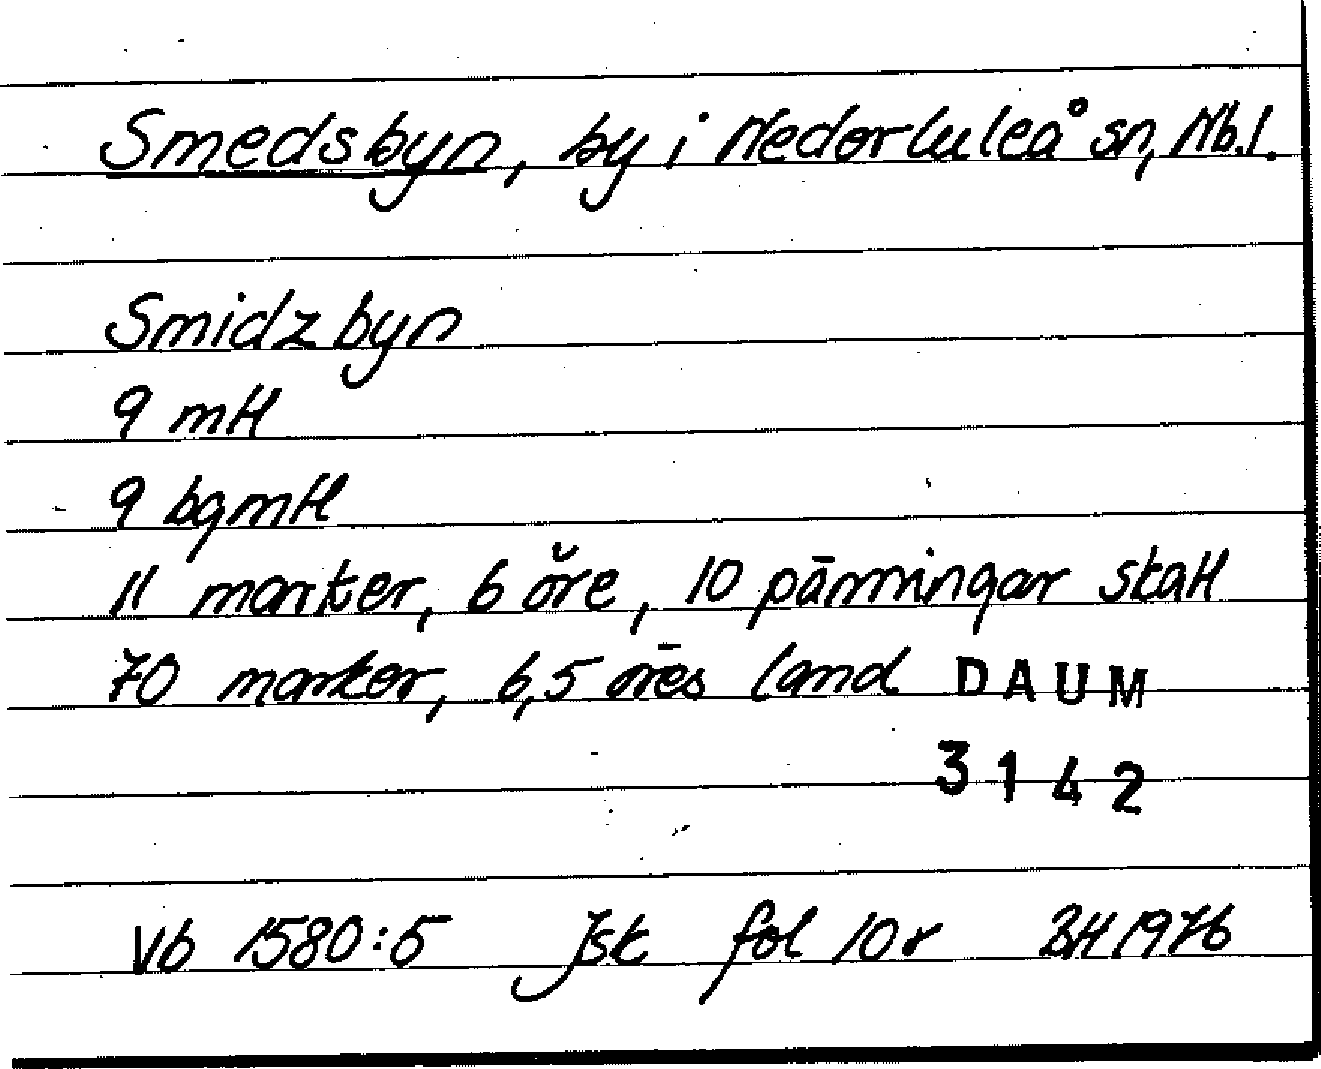 Smedsbyn, by i Nederluleå sn, Nb.l.
Smidzbyn
9 mtl
9 bgmtl
11 marker, 6 öre, 10 pänningar skatt
70 marker, 6,5 öres land DAUM
3142
Vb 1580:5 Jsk fol 10r BH 1976